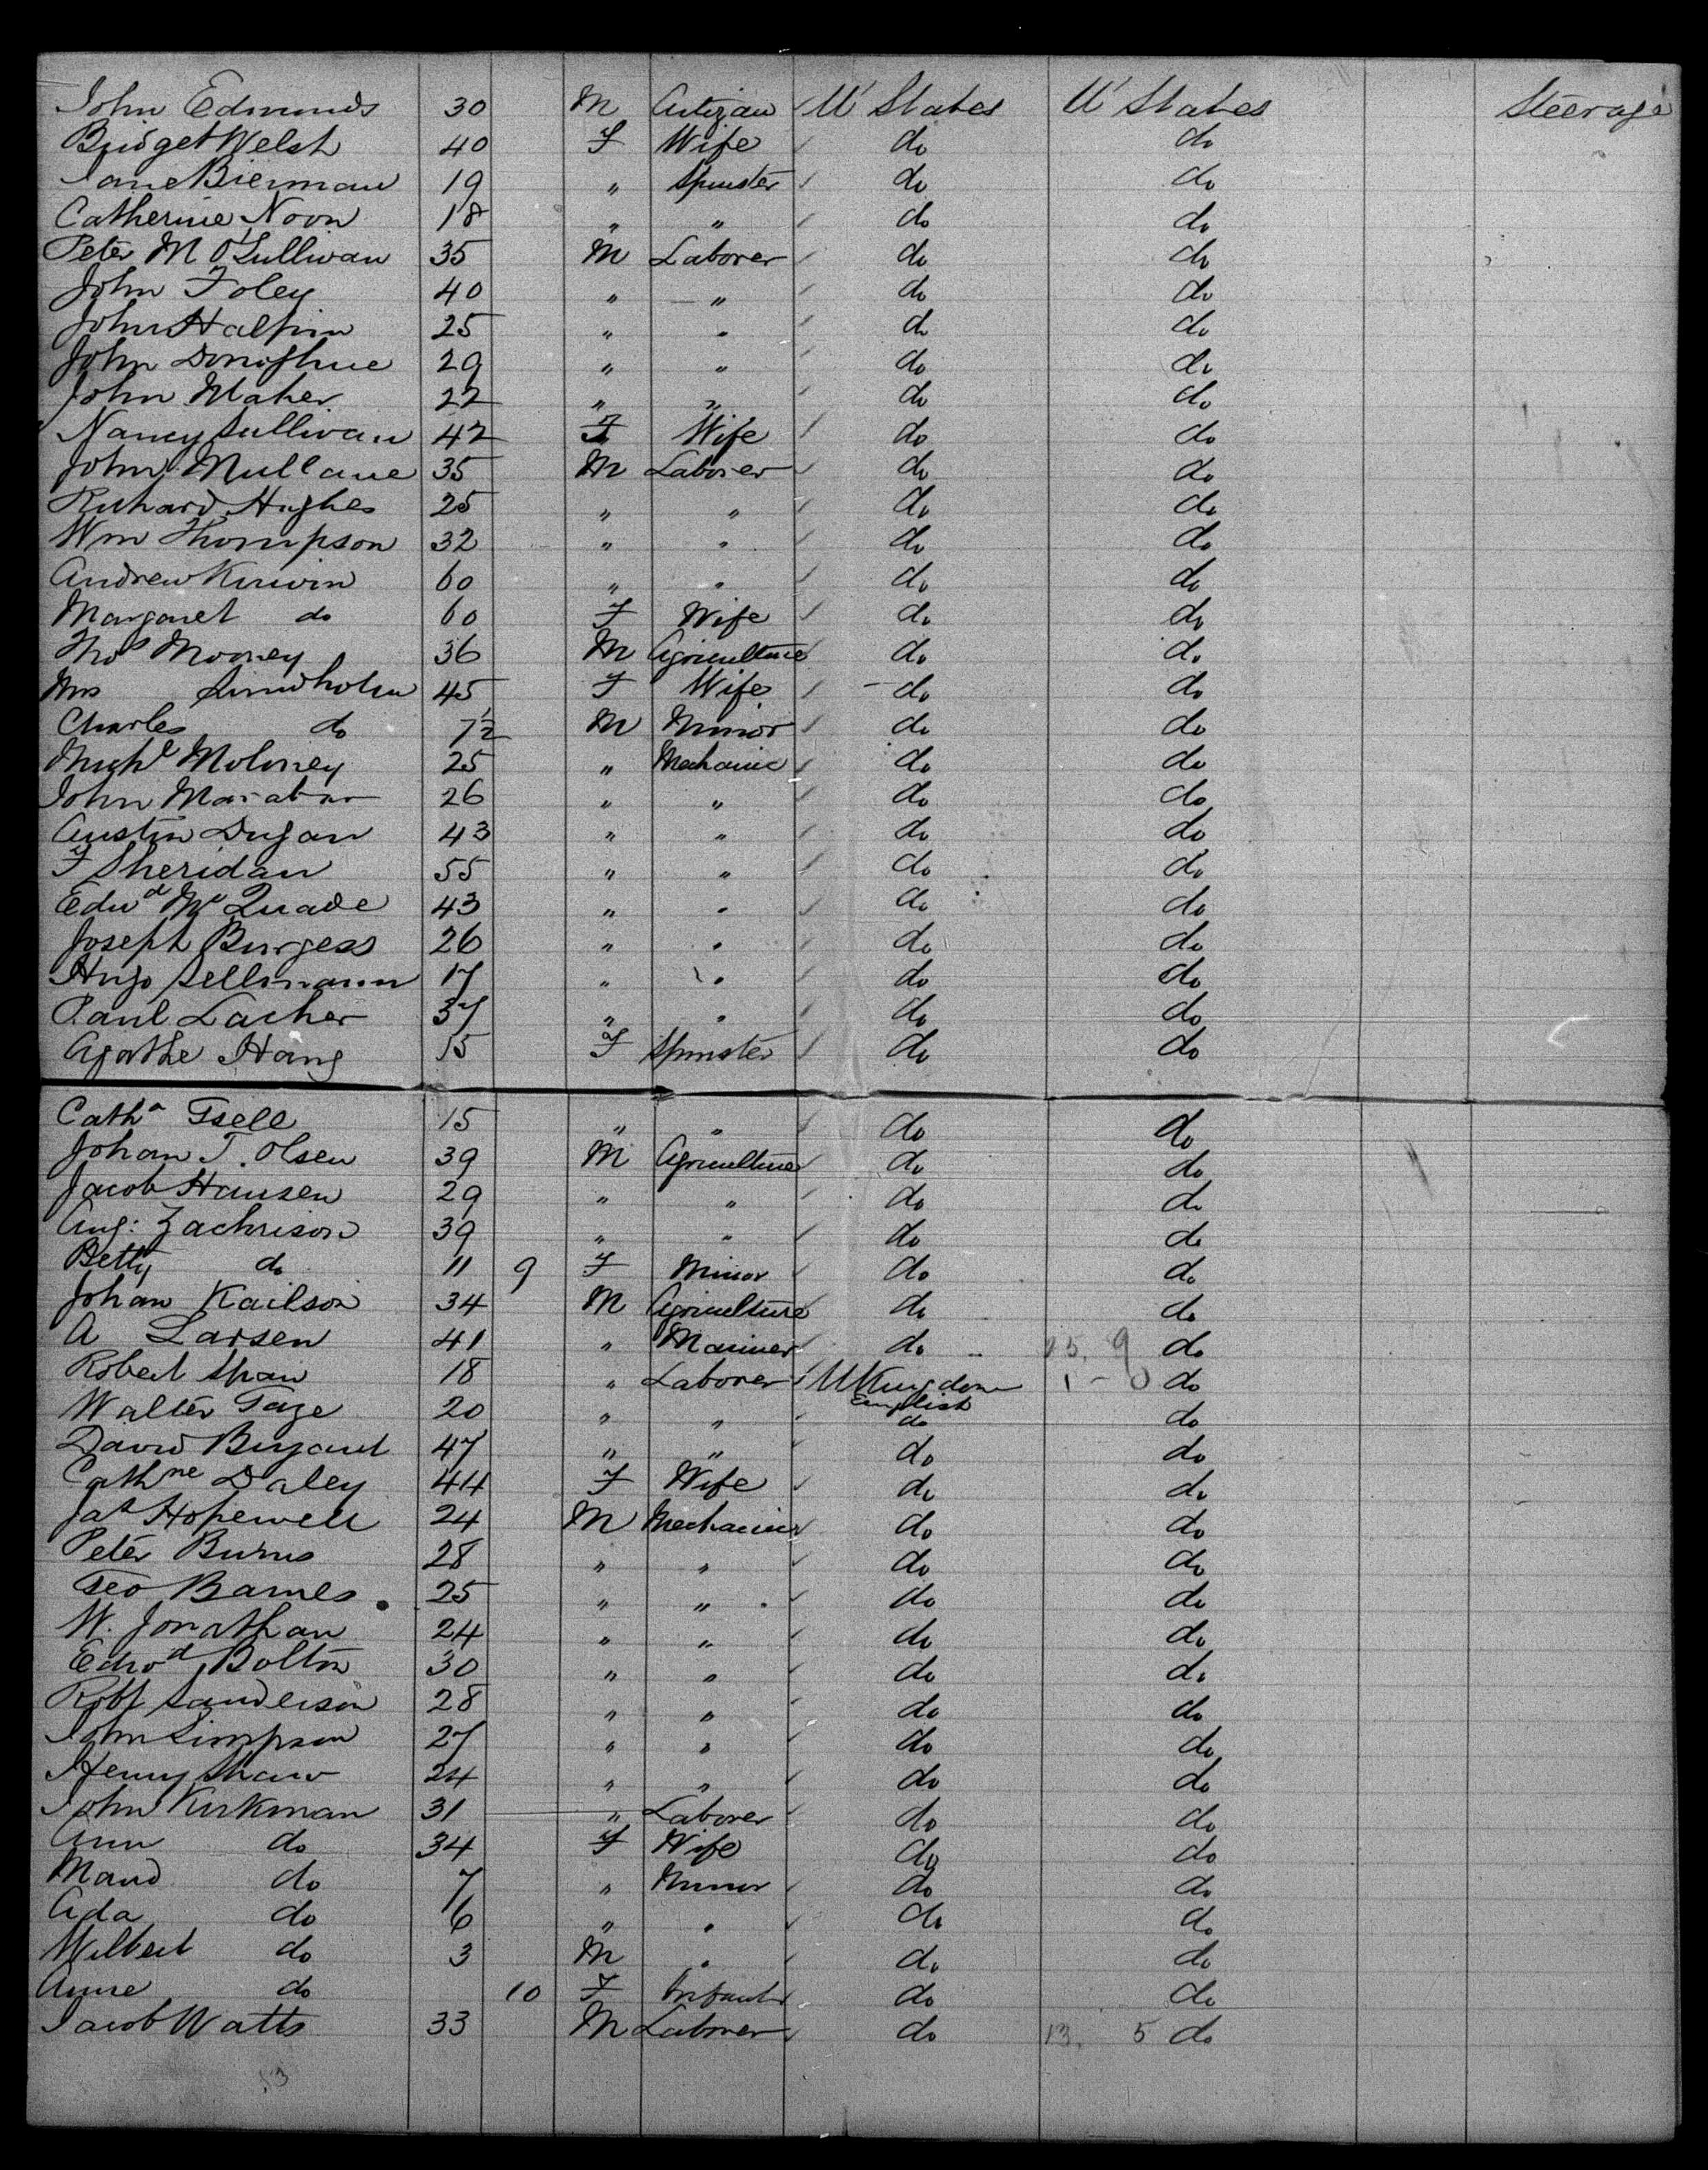 John Edmunds 30 M Artizan U' States U' States Steerage
Bridget Welsh 40 F Wife do do
Jane Bierman 19 " Spinster do do
Catherine Noon 18 " " do do
Peter M O'Sullivan 35 M Laborer do do
John Foley 40 " " do do
John Halpin 25 " " do do
John Donoghue 29 " " do do
John Maher 22 " " do do
Nancy Sullivan 42 F Wife do do
John Mullane 35 M Laborer do do
Richard Hughes 25 " " do do
Wm Thompson 32 " " do do
Andrew Kirwin 60 " " do do
Margaret do 60 F Wife do do
Thos Mooney 36 M Agriculture do do
Mrs 45 F Wife do do
Charles do 7½ M Minor do do
Michl Moloney 25 " Mechanic do do
John 26 " " do do
Austin Dugan 43 " " do do
F Sheridan 55 " " do do
Edwd McQuade 43 " " do do
Joseph Burgess 26 " " do do
Hugo Sellmann 17 " " do do
Paul Lacher 37 " " do do
Agathe Hang 15 F Spinster do do
Catha Gsell 15 " " do do
Johan T. Olsen 39 M Agriculture do do
Jacob Hansen 29 " " do do
Aug: Zachrison 39 " " do do
Betty do 11 9 F Minor do do
Johan Kailson 34 M Agriculture do do
A Larsen 41 " Mariner do do
Robert Shaw 18 " Laborer U Kingdom do
English
Walter 20 " " do do
David Bryant 47 " " do do
Cathne Daley 44 F Wife do do
Jas Hopewell 24 M Mechanic do do
Peter Burns 28 " " do do
Geo Barnes 25 " " do do
W. Jonathan 24 " " do do
Edwd Bolton 30 " " do do
Robt Sanderson 28 " " do do
John Simpson 27 " " do do
Henry Shaw 24 " " do do
John Kirkman 31 " Laborer do do
Ann do 34 F Wife do do
Maud do 7 " Minor do do
Ada do 6 " " do do
Wilbert do 3 M " do do
Anne do 10 F Infant do do
Jacob Watts 33 M Laborer do 13. 5 do